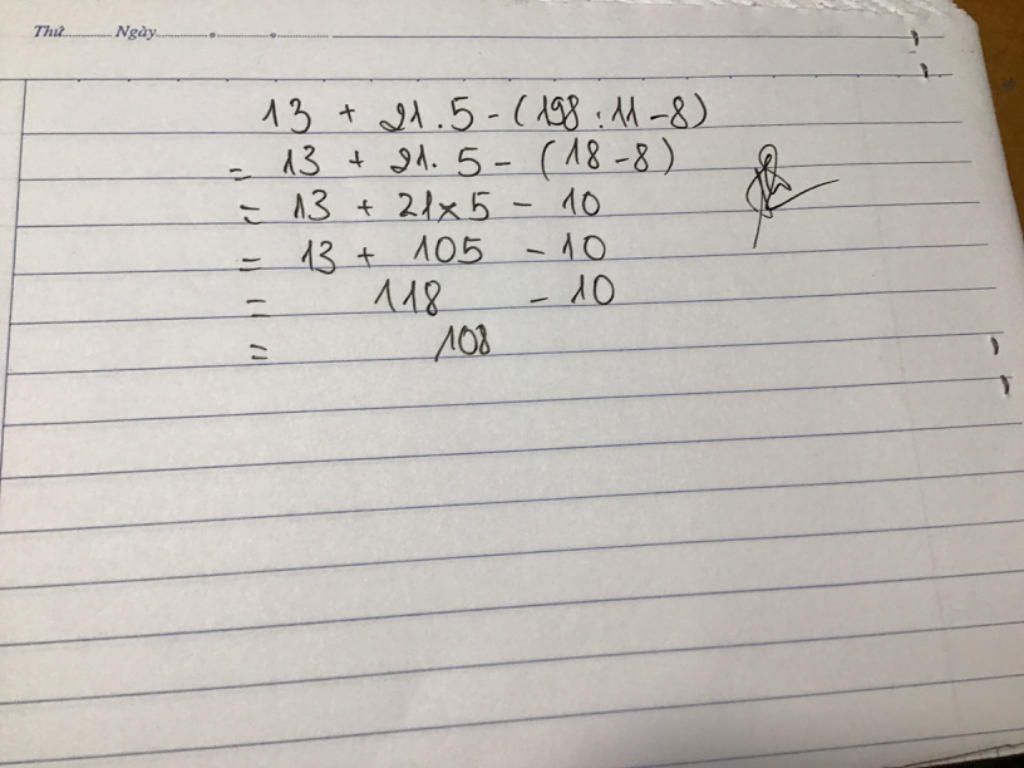 Thứ............ Ngày.............
13 + 21.5 - (198 : 11 - 8)
= 13 + 21. 5 - (18 - 8)
= 13 + 21 x 5 - 10
= 13 + 105 - 10
= 118 - 10
= 108